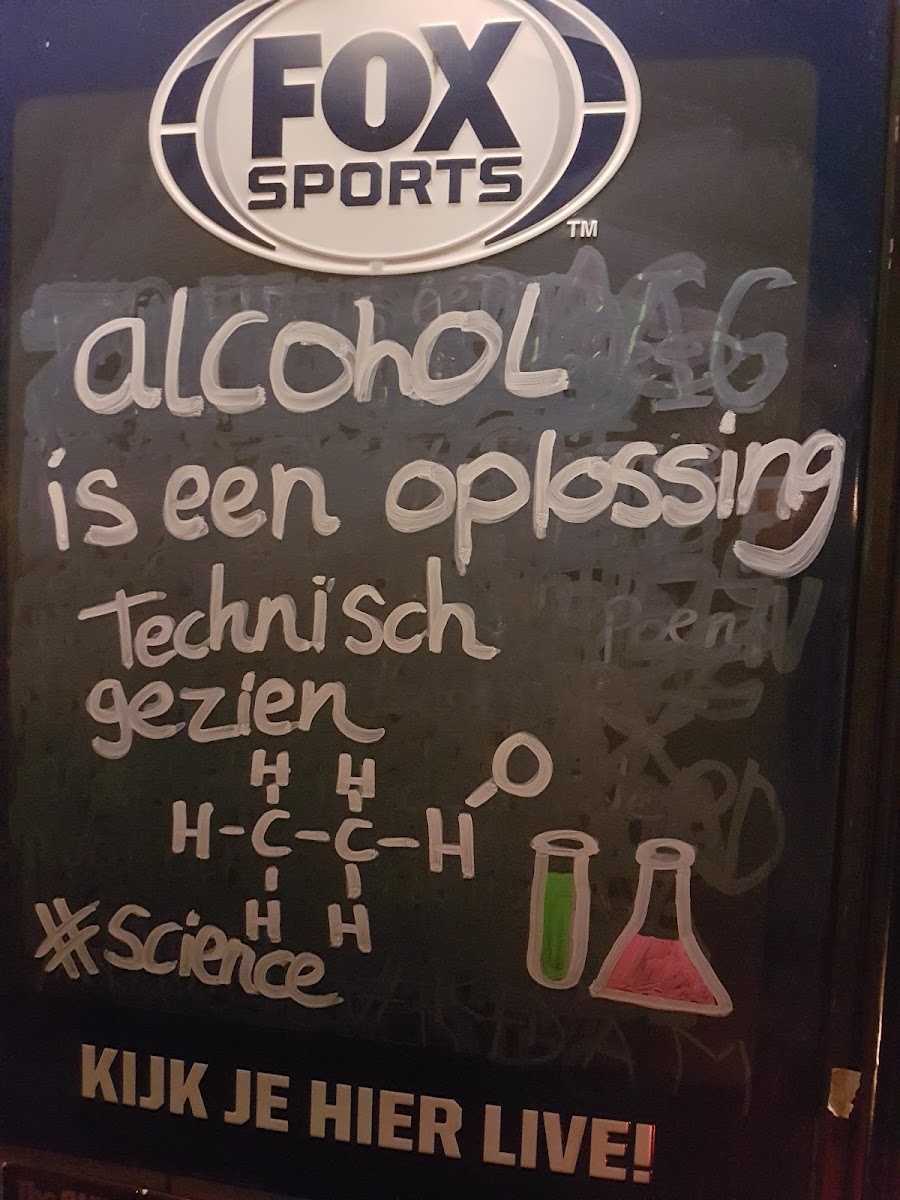 FOX
SPORTS
TM
alcohol
is een oplossing
Technisch
gezien
H H O
H-C-C-H
H H
#Science
Poen
KIJK JE HIER LIVE!